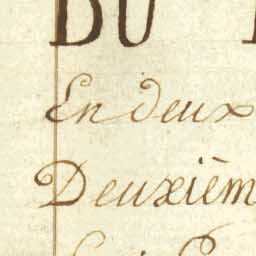 DU
En deux
Deuxièm